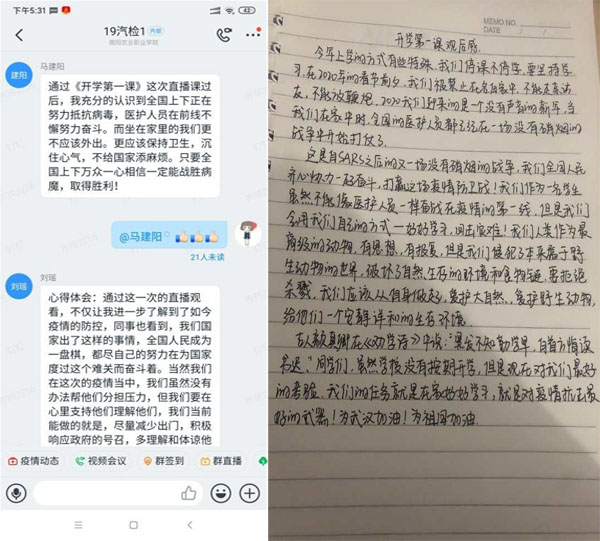 下午5:31
42
19汽检1 内部
南阳农业职业学院
建阳
马建阳
通过《开学第一课》这次直播课过
后，我充分的认识到全国上下正在
努力抵抗病毒，医护人员在前线不
懈努力奋斗。而坐在家里的我们更
不应该外出。更应该保持卫生，沉
住心气，不给国家添麻烦。只要全
国上下万众一心相信一定能战胜病
魔，取得胜利！
@马建阳
21人未读
刘瑶
刘瑶
心得体会：通过这一次的直播观
看，不仅让我进一步了解到了如今
疫情的防控，同事也看到，我们国
家出了这样的事情，全国人民成为
一盘棋，都尽自己的努力在为国家
度过这个难关而奋斗着。当然我们
在这次的疫情当中，我们虽然没有
办法帮他们分担压力，但我们要在
心里支持他们理解他们，我们当前
能做的就是，尽量减少出门，积极
响应政府的号召，多理解和体谅他
疫情动态 视频会议 群签到 群直播
MEMO NO.
DATE / /
开学第一课观后感
今年上学的方式有些特殊，我们停课不停学，要坚持学
习，在2020年的春节前夕，我们被禁止在各自家中，不能走亲访
友，不能放鞭炮，2020我们迎来的是一个没有声音的新年，当
我们在家中时，全国的医护人员都已经在一场没有硝烟的
战争中开始打仗了。
这是自SARS之后的又一场没有硝烟的战争，我们全国人民
齐心协力一起奋斗，打赢这场疫情防卫战！我们作为一名学生
虽然不能像医护人员一样奋战在疫情的第一线，但是我们
会用我们自己的方式一好好学习，回击灾难！我们人类作为最
高级的动物，有思想，有报复，但是我们侵犯了本来属于野
生动物的世界，破坏了自然生存的环境和食物链，要拒绝
杀戮，我们应该从自身做起，爱护大自然，爱护野生动物，
给他们一个安静详和的生存环境。
古人颜真卿在《劝学诗》中说：“黑发不知勤学早，白首方悔读
书迟，”同学们，虽然学校没有按期开学，但是现在对我们最好
的考验，我们的任务就是在家好好学习，就是对疫情抗击最
好的武器！为武汉加油！为祖国加油